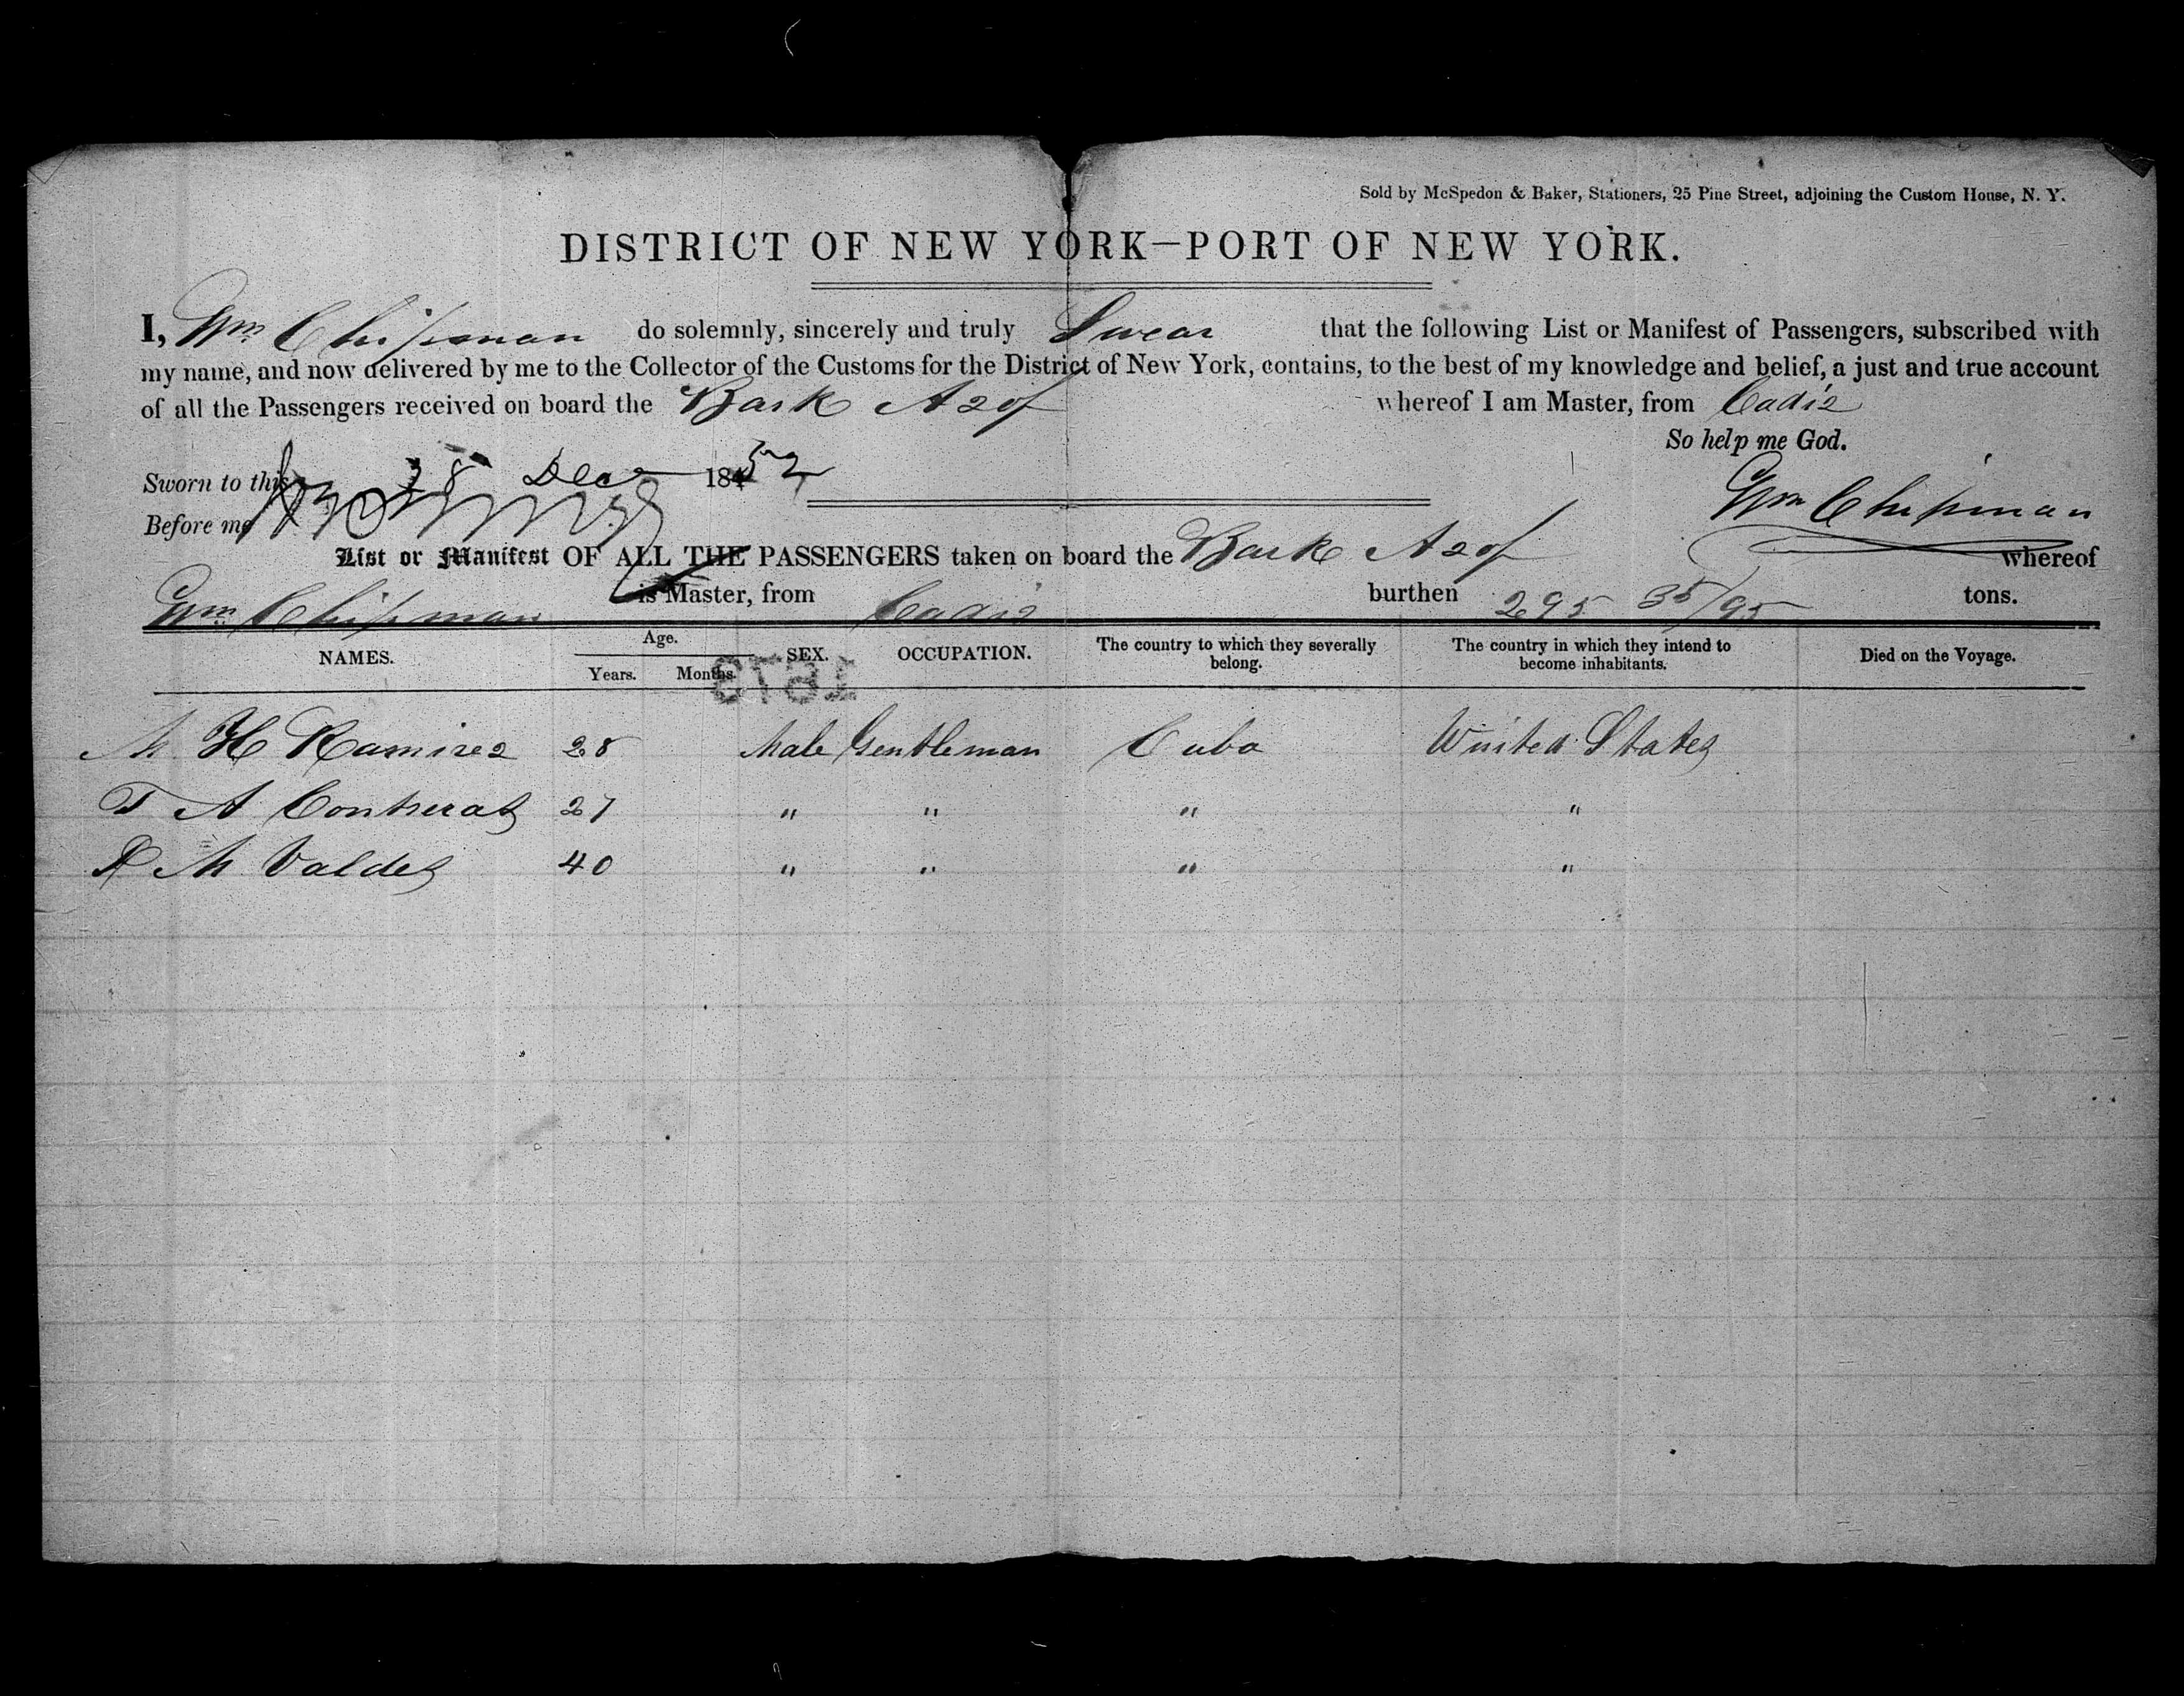 Sold by McSpedon & Baker, Stationers, 25 Pine Street, adjoining the Custom House, N. Y.
DISTRICT OF NEW YORK—PORT OF NEW YORK.
I, Wm Chipman do solemnly, sincerely and truly Swear that the following List or Manifest of Passengers, subscribed with
my name, and now delivered by me to the Collector of the Customs for the District of New York, contains, to the best of my knowledge and belief, a just and true account
of all the Passengers received on board the Bark Azof whereof I am Master, from Cadiz
So help me God.
Sworn to this 28 Dec 1852
Wm Chipman
Before me
List or Manifest OF ALL THE PASSENGERS taken on board the Bark Azof whereof
Wm Chipman is Master, from Cadiz burthen 295 35/95 tons.
NAMES. Age. Years. Months. SEX. OCCUPATION. The country to which they severally belong. The country in which they intend to become inhabitants. Died on the Voyage.
1813
M H Ramirez 28 Male Gentleman Cuba United States
T A Contreras 27 " " " "
R M Valdes 40 " " " "